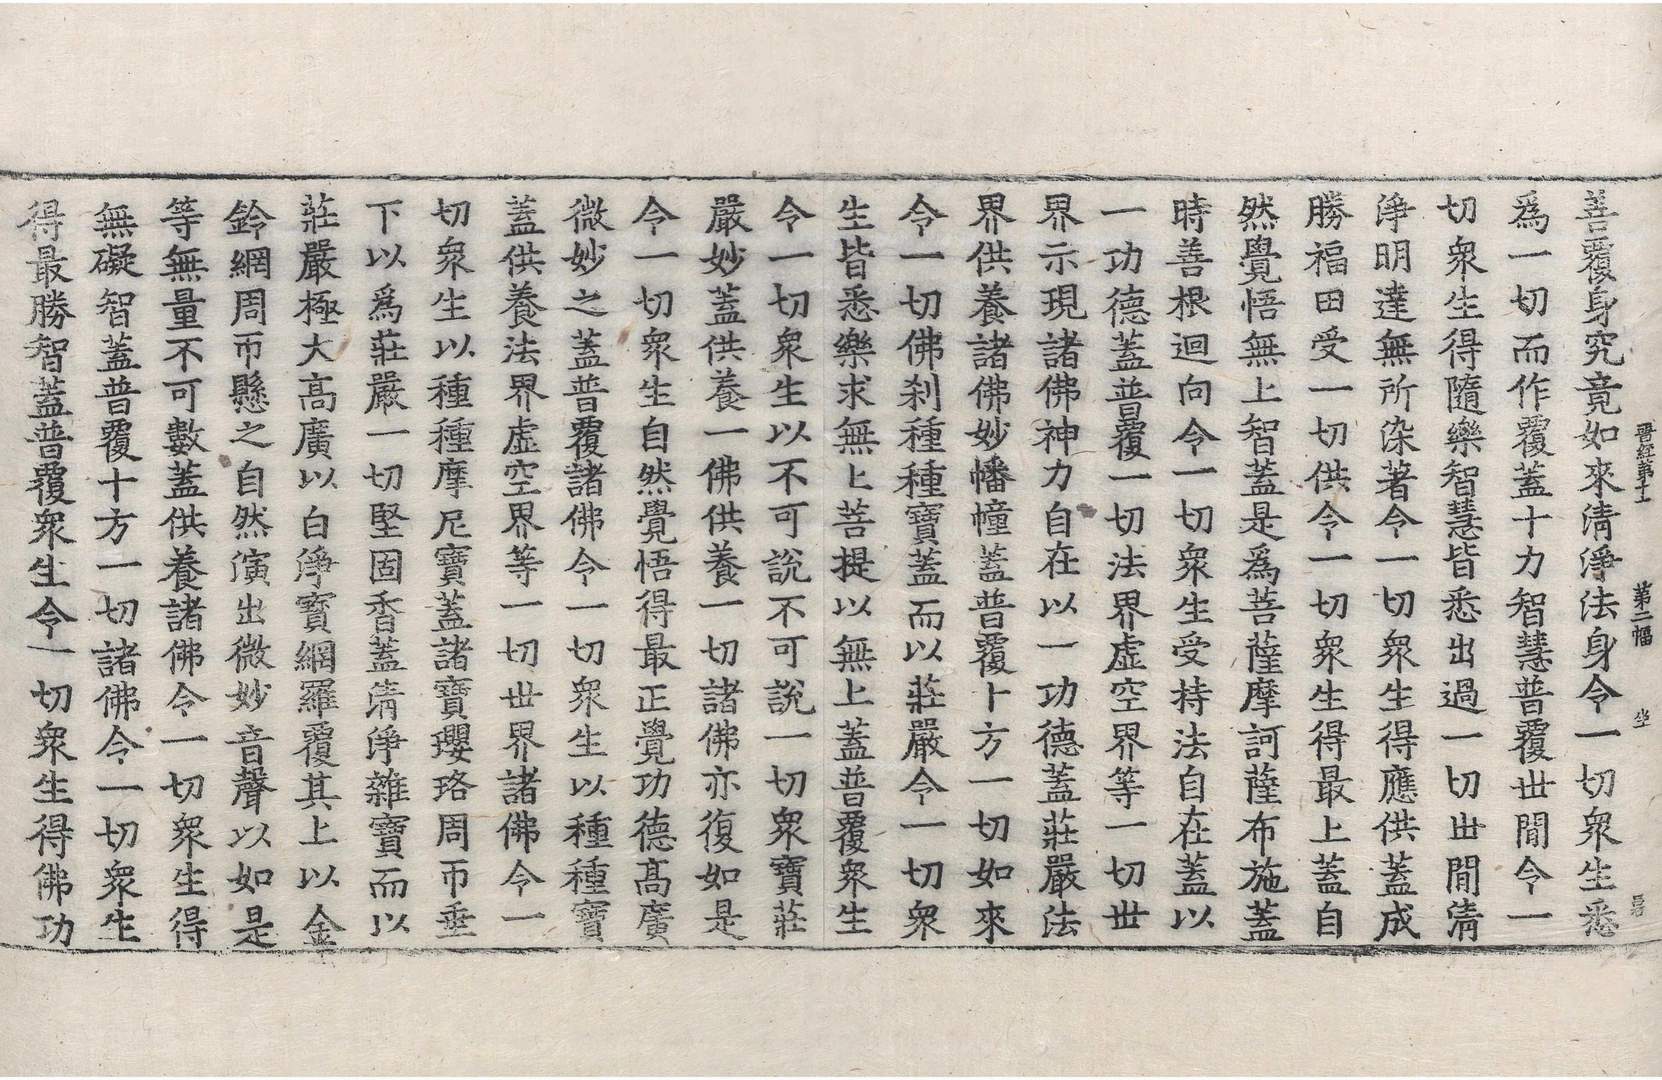 善覆身究竟如來清淨法身令一切衆生悉
爲一切而作覆蓋十力智慧普覆世間令一
切衆生得隨樂智慧皆悉出過一切世間淸
淨明達無所染著令一切衆生得應供蓋成
勝福田受一切供令一切衆生得最上蓋自
然覺悟無上智蓋是爲菩薩摩訶薩布施蓋
時善根迴向令一切衆生受持法自在蓋以
一功德蓋普覆一切法界虛空界等一切世
界示現諸佛神力自在以一功德蓋莊嚴法
界供養諸佛妙幡幢蓋普覆十方一切如來
令一切佛刹種種寶蓋而以莊嚴令一切衆
生皆悉樂求無上菩提以無上蓋普覆衆生
令一切衆生以不可說不可說一切衆寶莊
嚴妙蓋供養一佛供養一切諸佛亦復如是
令一切衆生自然覺悟得最正覺功德高廣
微妙之蓋普覆諸佛令一切衆生以種種寶
蓋供養法界虛空界等一切世界諸佛令一
切衆生以種種摩尼寶蓋諸寶瓔珞周帀垂
下以爲莊嚴一切堅固香蓋淸淨雜寶而以
莊嚴極大高廣以白淨寶網羅覆其上以金
鈴網周帀懸之自然演出微妙音聲以如是
等無量不可數蓋供養諸佛令一切衆生得
無礙智蓋普覆十方一切諸佛令一切衆生
得最勝智蓋普覆衆生令一切衆生得佛功
晋經第十 第二幅 坐